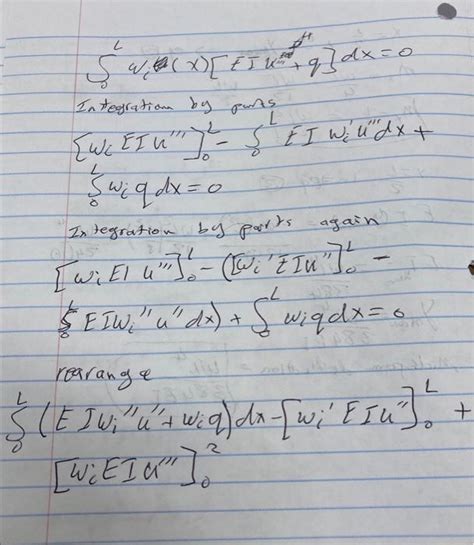 ∫₀ᴸ wᵢ(x)[EIu'''' + q]dx = 0
Integration by parts
[wᵢ EI u''']₀ᴸ - ∫₀ᴸ EI wᵢ'u'''dx +
∫₀ᴸ wᵢ q dx = 0
Integration by parts again
[wᵢ EI u''']₀ᴸ - ([wᵢ' EIu'']₀ᴸ -
∫₀ᴸ EIwᵢ''u''dx) + ∫₀ᴸ wᵢqdx = 0
rearange
∫₀ᴸ (EIwᵢ''u'' + wᵢq)dx - [wᵢ' EIu'']₀ᴸ +
[wᵢEIu''']₀²